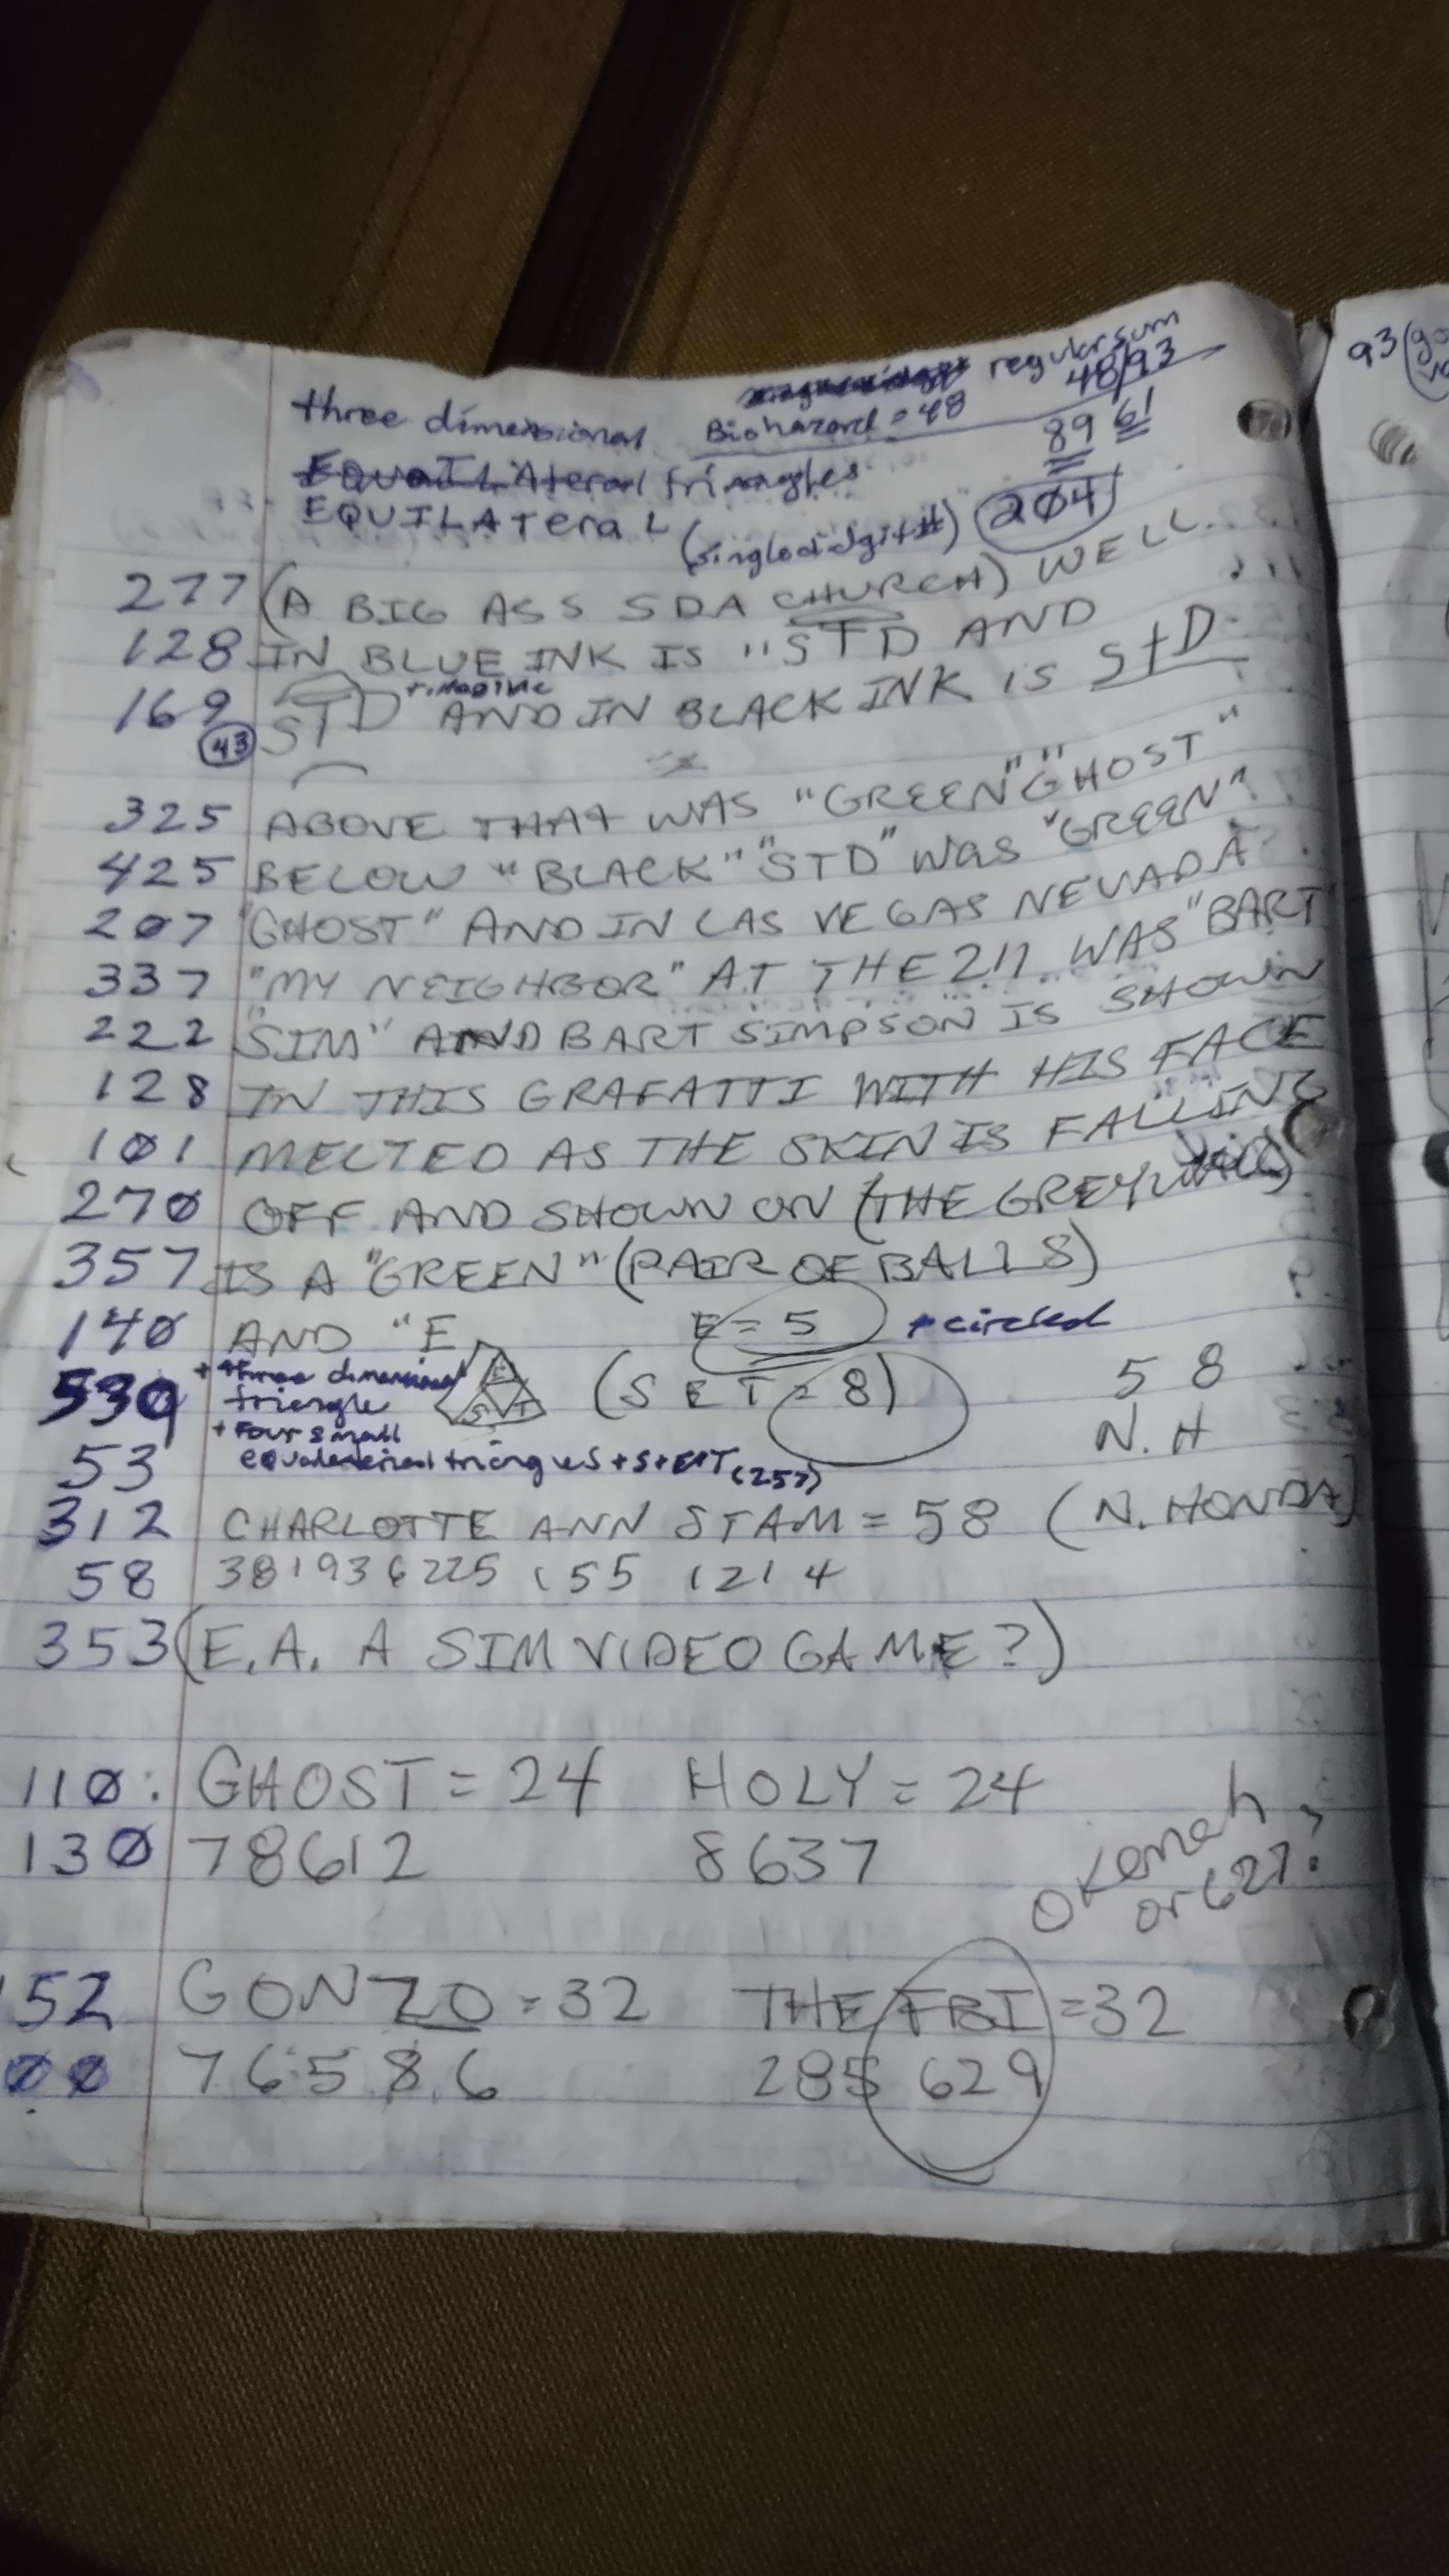 regular sum
three dimensional Biohazard = 48 48/93
EQUAILAteral triangles 89 61
EQUILATeraL (single didgit #) 204
93 (go
277 (A BIG ASS SDA CHURCH) WELL
128 IN BLUE INK IS "STD AND
169 STD AND IN BLACK INK IS StD
43
325 ABOVE THAT WAS "GREEN" "GHOST"
425 BELOW "BLACK" "STD" WAS "GREEN"
207 "GHOST" AND IN LAS VEGAS NEVADA
337 "MY NEIGHBOR" AT THE 211 WAS "BART
222 "SIM" AND BART SIMPSON IS SHOWN
128 IN THIS GRAFATTI WITH HIS FACE
101 MELTED AS THE SKIN IS FALLING
270 OFF AND SHOWN ON (THE GREY
357 IS A "GREEN" (PAIR OF BALLS)
140 AND "E E = 5 + circled
539 + three dimensional triangle E S T (SET = 8) 5 8
+ Four small N. H
53 triangles + S + E + T (257)
312 CHARLOTTE ANN STAM = 58 (N. HONDA)
58 381936225 155 1214
353 (E.A. A SIM VIDEO GAME?)
110: GHOST = 24 HOLY = 24
130 78612 8637
OKemah or 627?
152 GONZO = 32 THE FBI = 32
00 76586 285 629